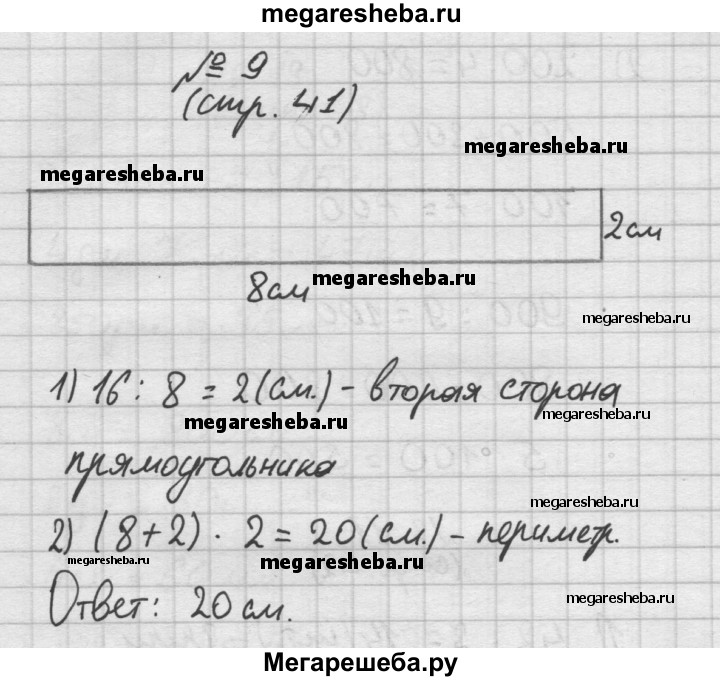 megaresheba.ru
№ 9
(стр. 41)
megaresheba.ru
megaresheba.ru
2см
8см
megaresheba.ru
megaresheba.ru
1) 16 : 8 = 2 (см.) - вторая сторона
megaresheba.ru
megaresheba.ru
прямоугольника
megaresheba.ru
2) (8+2) · 2 = 20 (см.) - периметр.
megaresheba.ru
megaresheba.ru
Ответ: 20 см.
Мегарешеба.ру